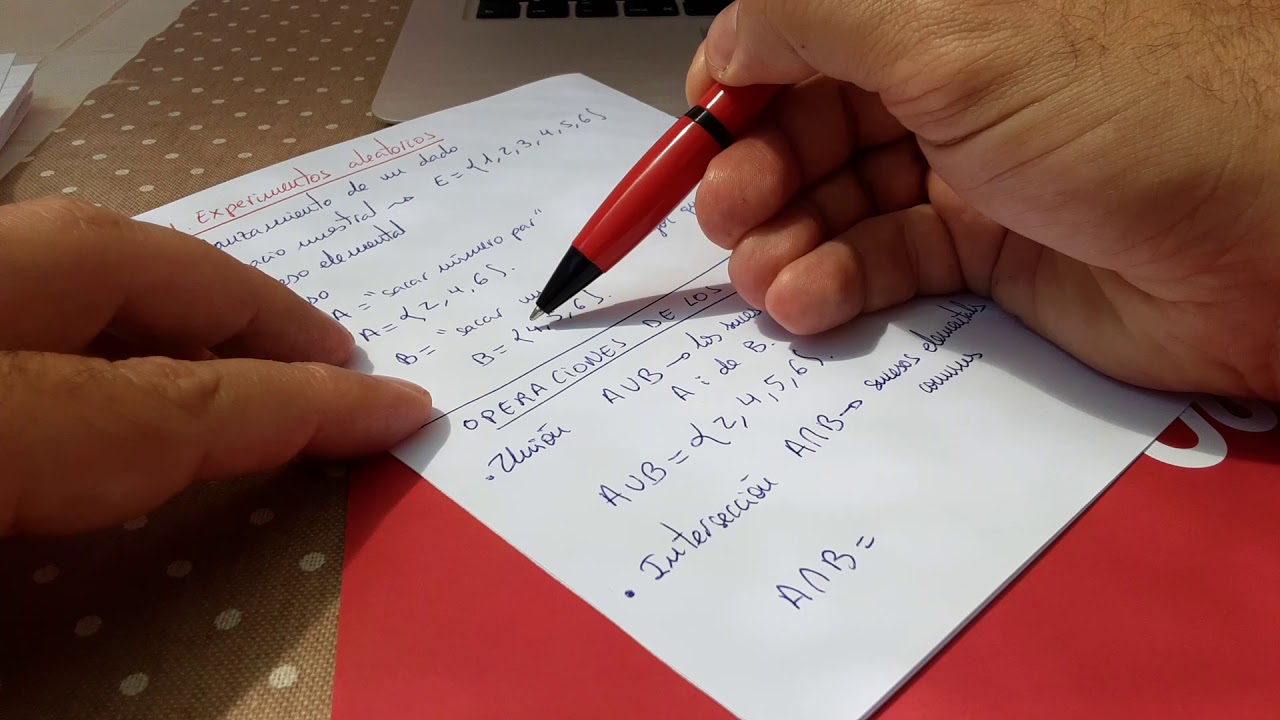 Experimentos aleatorios
lanzamiento de un dado
muestral → E = {1, 2, 3, 4, 5, 6}
elemental
A = "sacar número par"
A = {2, 4, 6}.
B = "sacar
B = {4, 5, 6}.
OPERACIONES DE LOS
• Unión A∪B → los suces
A i de B.
A∪B = {2, 4, 5, 6}.
• Intersección A∩B → sucesos elementales
comunes
A∩B =